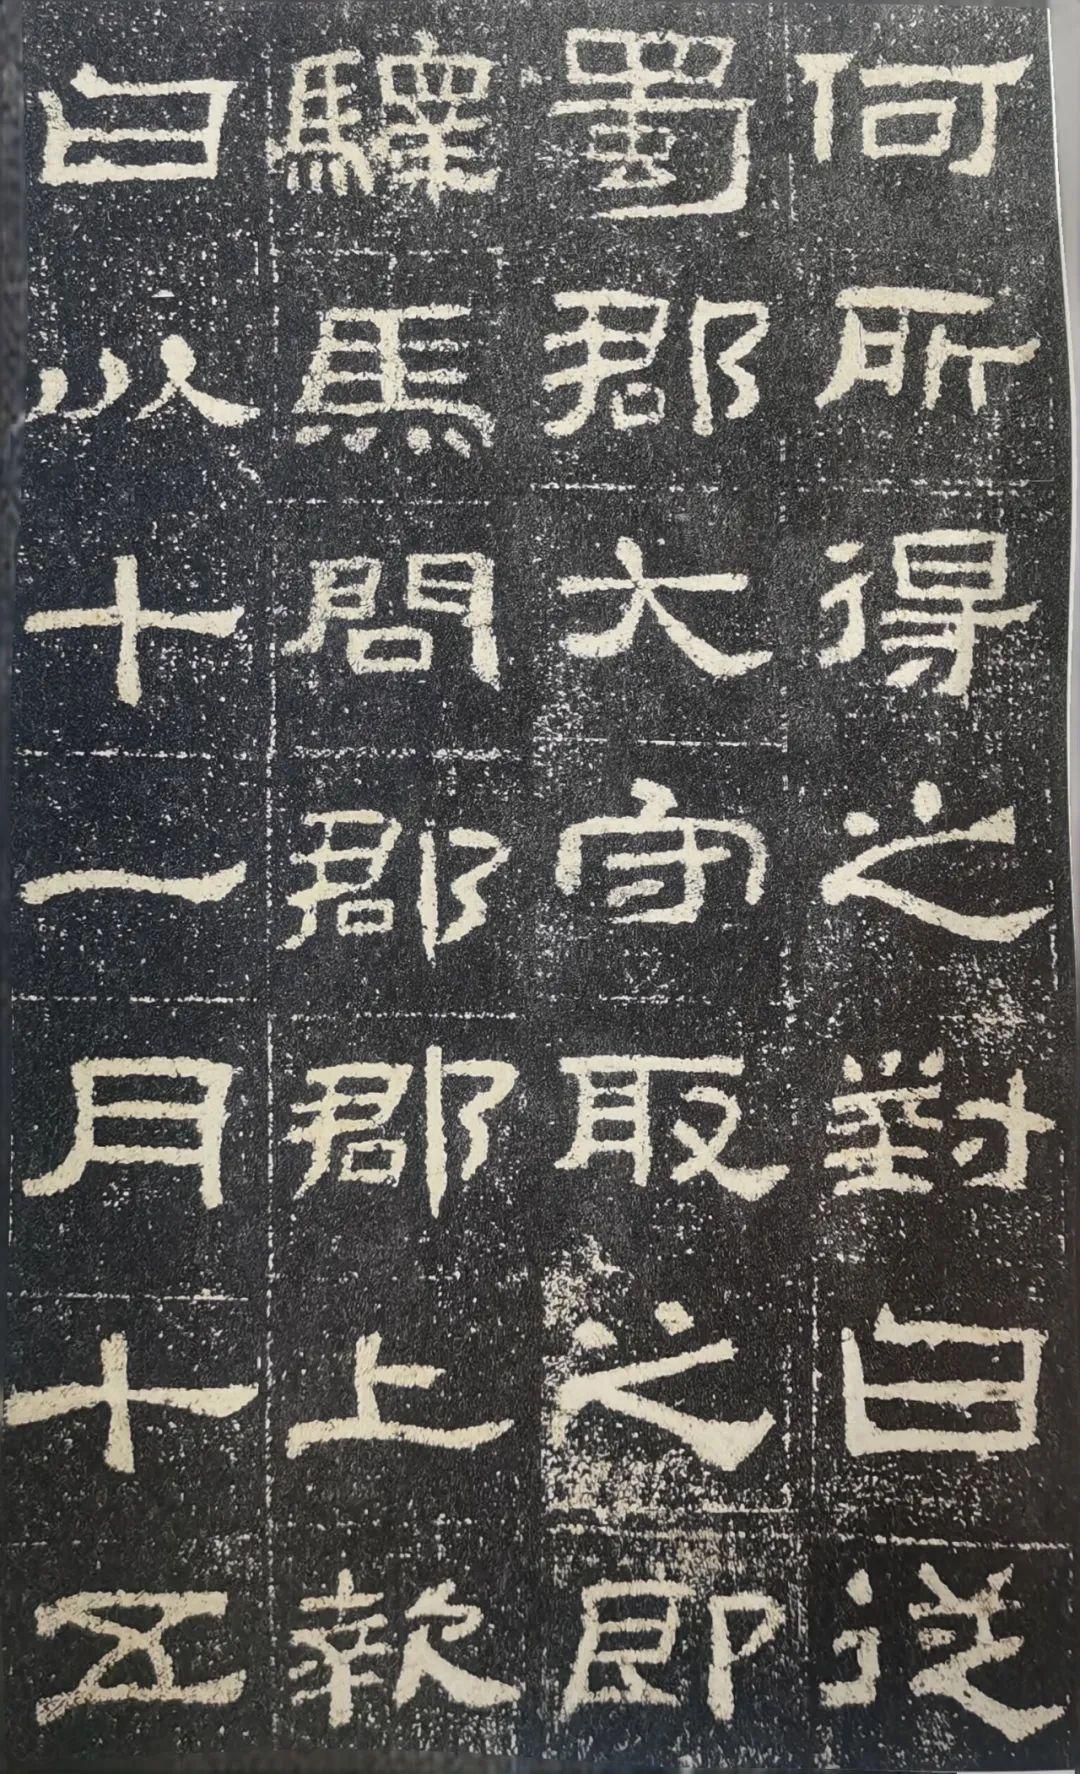 何所得之對曰從
蜀郡大守取之即
驛馬問郡郡上款
曰以十一月十五